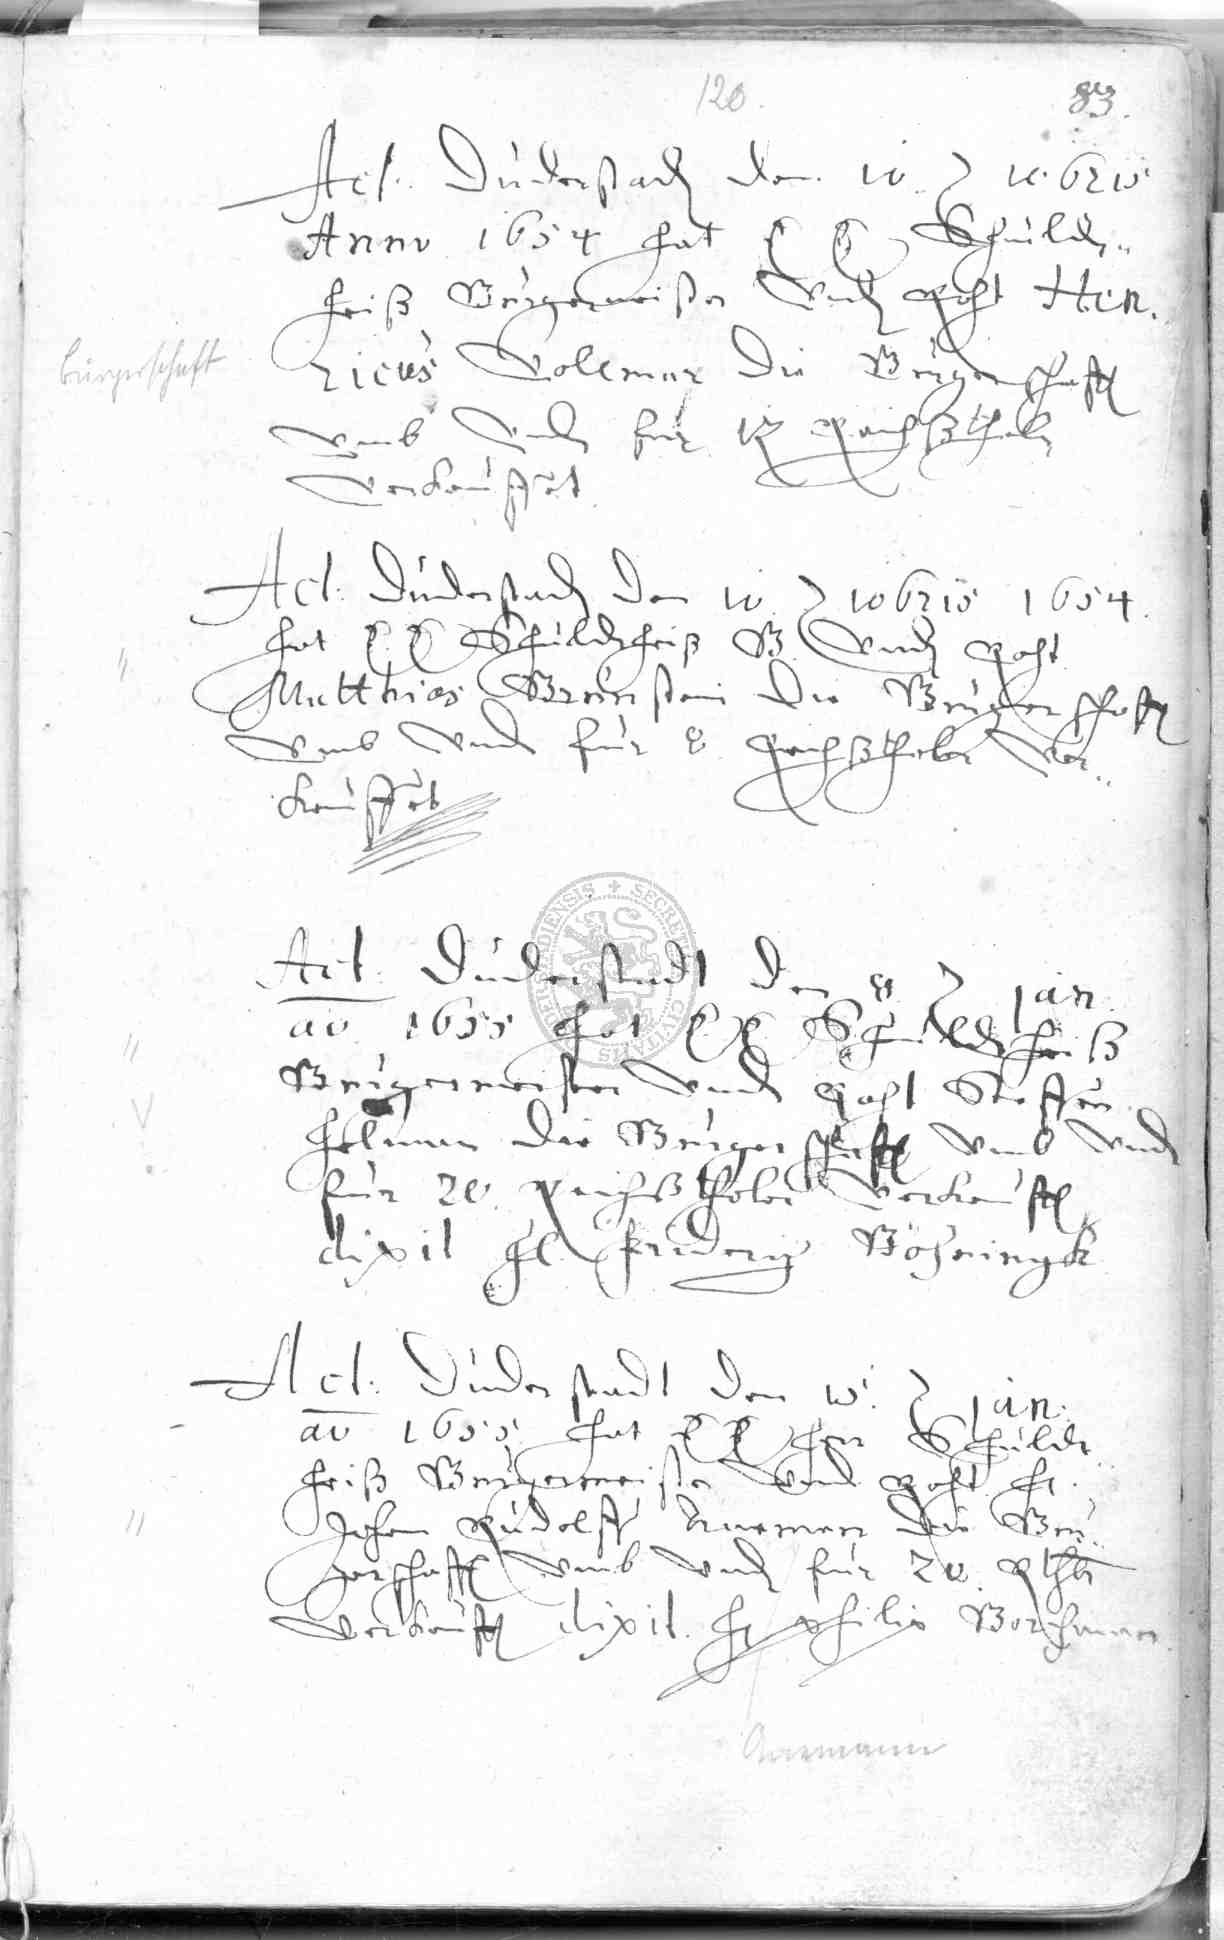 120. 83.
Act. Duderstadt den 10 10bris
Anno 1654 hat E E Schuldt..
heiß Bürgermeister undt Raht Hen.
ricus Vollmar die Bürgerschafft
Bürgerschaft
umb undt für Reichßthaler
verkauffet
Act. Duderstadt den 10 10bris 1654.
hat E. E. Schuldtheiß B undt Raht
Matthias die Bürgerschafft
umb undt für 8 Reichßthaler ver..
kauffet
Act. Duderstadt den 8 Jan
ao 1655 hat E E Schuldtheiß
Bürgermeister undt Raht Steffen
die Bürgerschafft umb undt
für 20. Reichßthaler verkaufft
dixit H. Friderich
Act. Duderstadt den 10. Jan.
ao 1655. hat E E Her Schuldt
heiß Bürgermeister undt Raht H.
Johan Rudolff die Bür..
gerschafft umb undt für 20. Rthlr
verkaufft dixit. H Philip
Aurmann